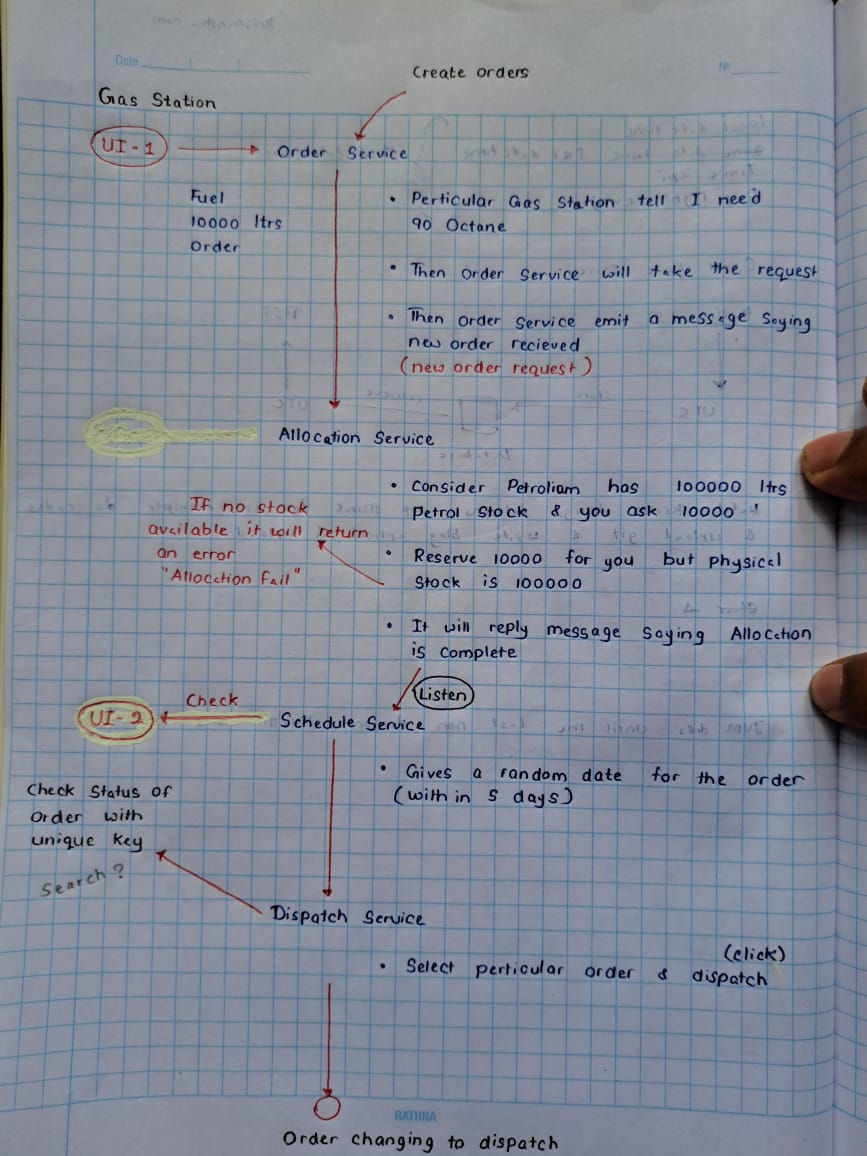 Date
Nº
Create orders
Gas Station
UI - 1
Order Service
Fuel
10000 ltrs
Order
• Perticular Gas Station tell I need
90 Octane
• Then order Service will take the request
• Then order Service emit a message Saying
new order recieved
(new order request)
Allocation Service
• Consider Petroliam has 100000 ltrs
Petrol Stock & you ask 10000 "
If no stock
available it will return
an error
"Allocation Fail"
• Reserve 10000 for you but physical
Stock is 100000
• It will reply message Saying Allocation
is Complete
Listen
Check
UI - 2
Schedule Service
• Gives a random date for the order
(with in 5 days)
Check Status of
Order with
unique Key
Search?
Dispatch Service
(click)
• Select perticular order & dispatch
RATHNA
Order changing to dispatch